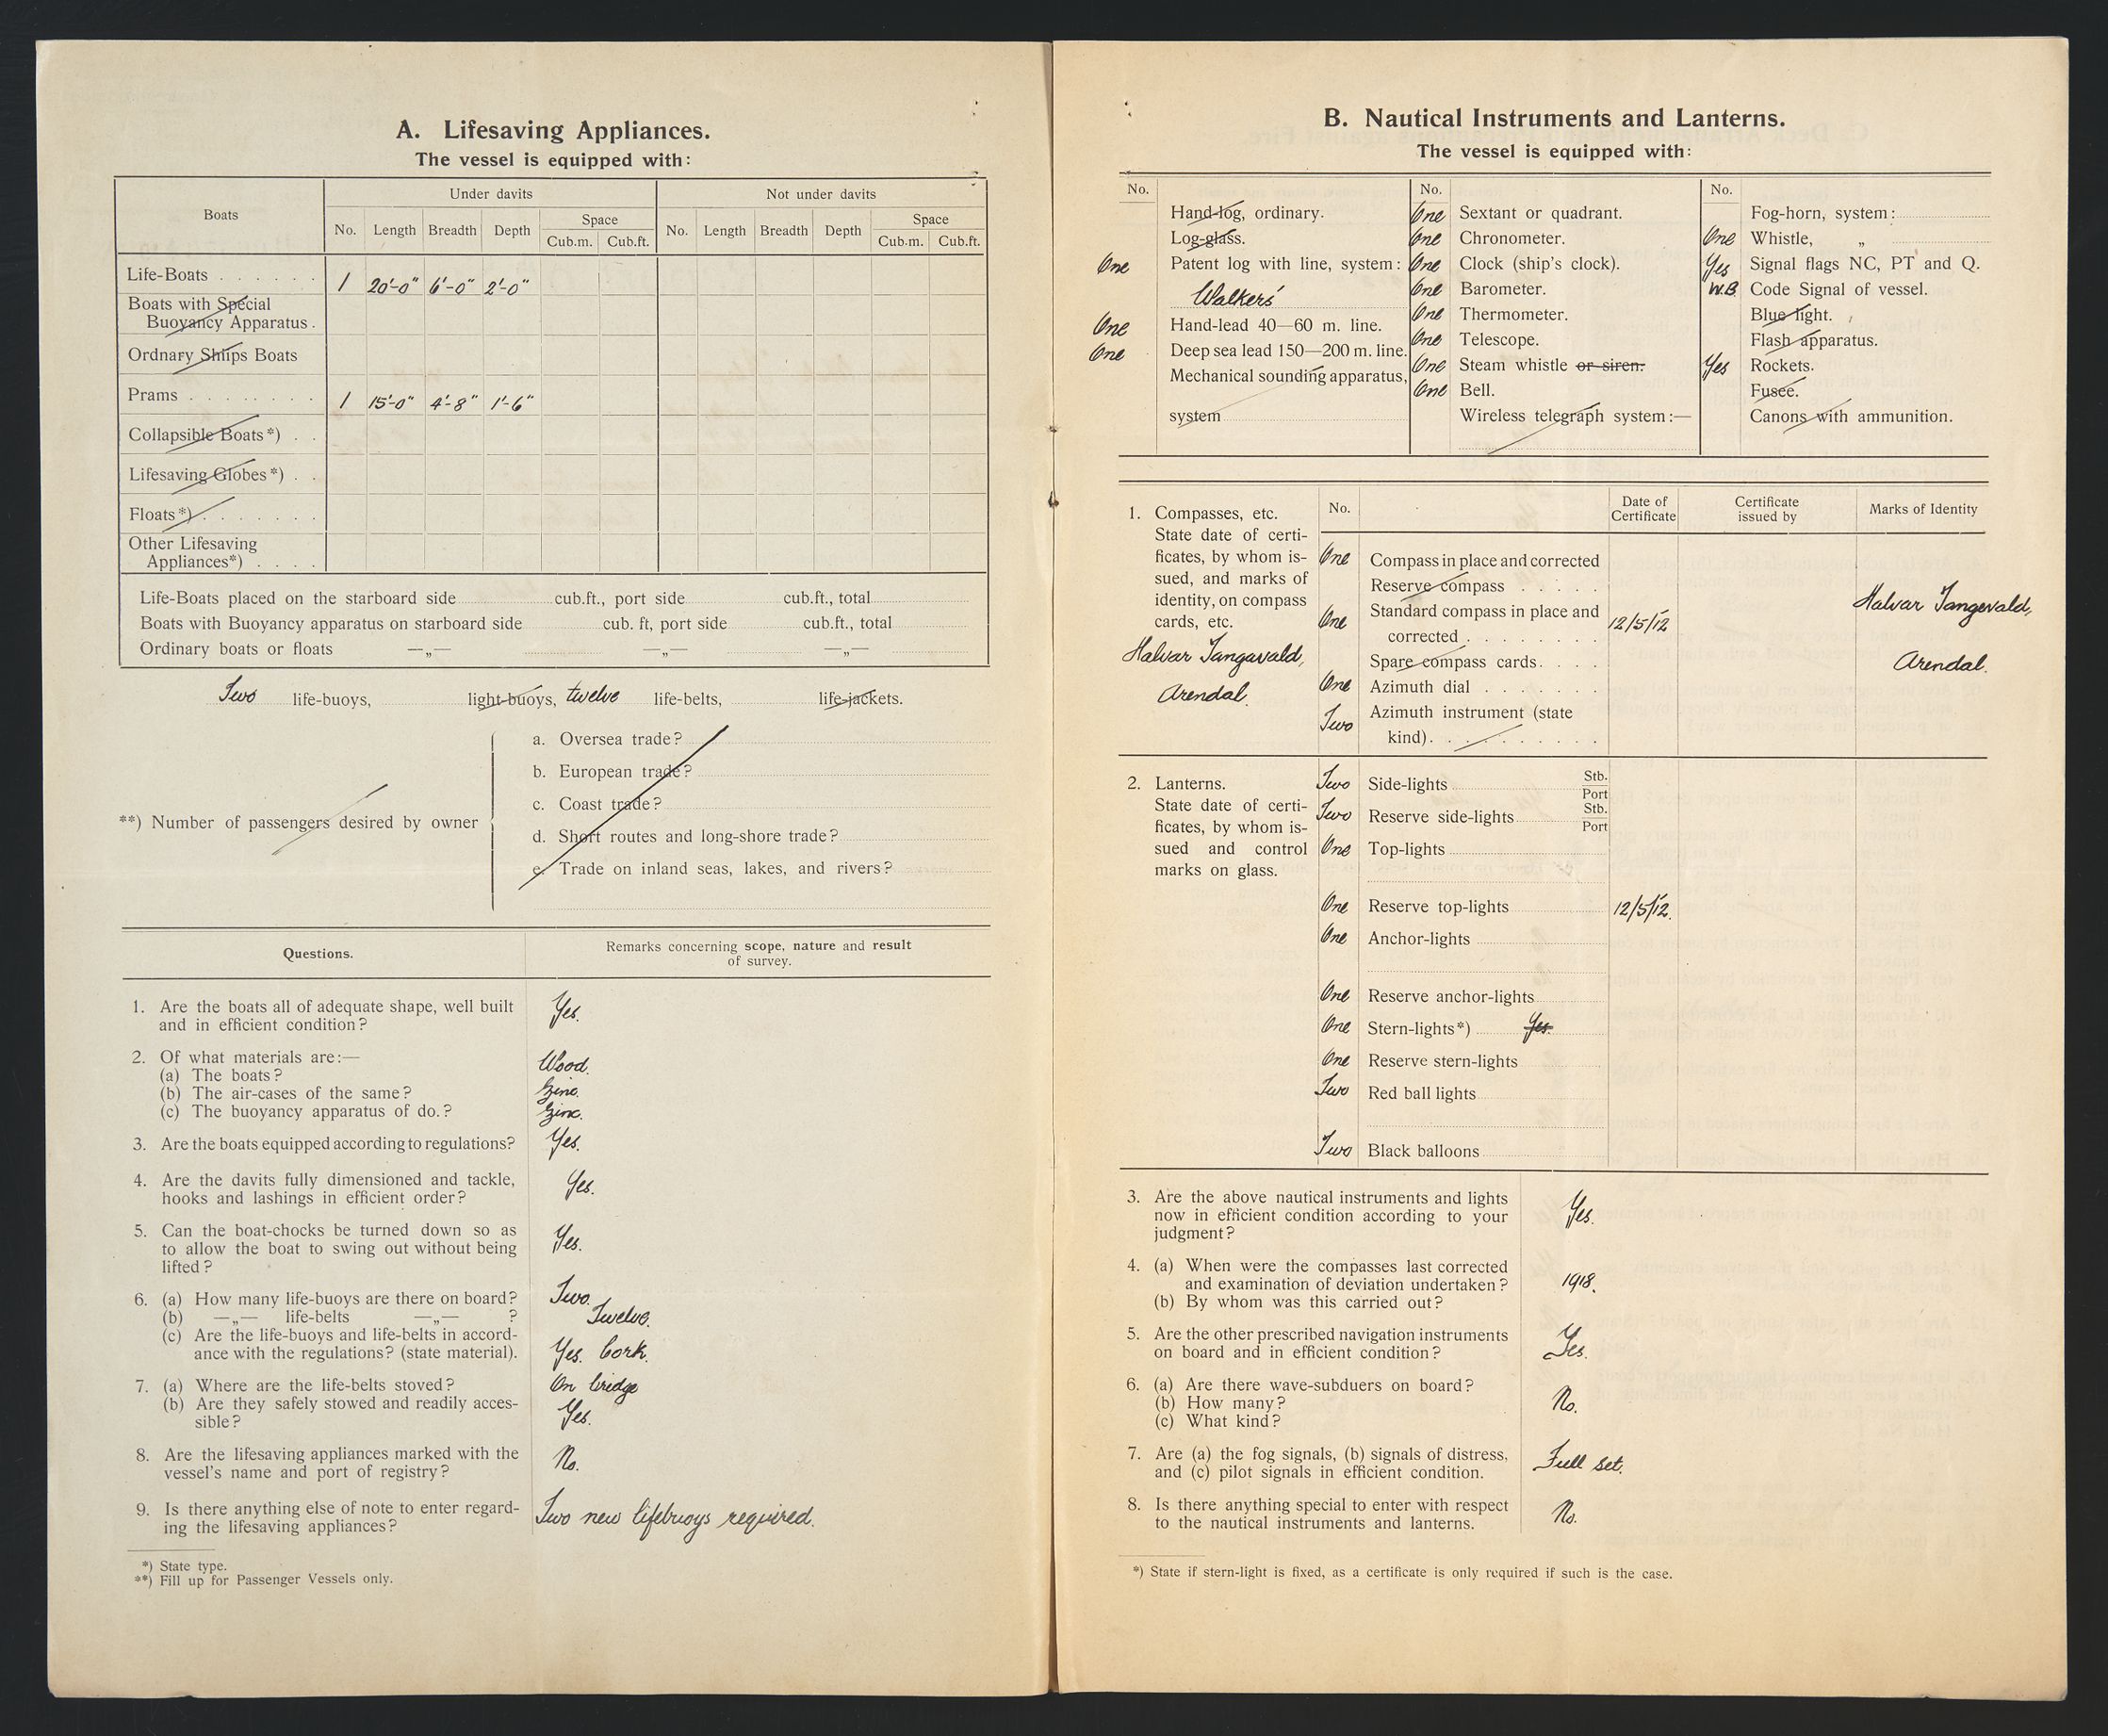 A. Lifesaving Appliances.
The vessel is equipped with:
Boats
Under davits
Not under davits
No. Length Breadth Depth Space Cub.m. Cub.ft.
No. Length Breadth Depth Space Cub.m. Cub.ft.
Life-Boats . . . . . . 1 20'-0" 6'-0" 2'-0"
Boats with Special
Buoyancy Apparatus .
Ordnary Ships Boats
Prams . . . . . . . 1 15'-0" 4'-8" 1'-6"
Collapsible Boats*) . .
Lifesaving Globes*) . .
Floats*) . . . . . . .
Other Lifesaving
Appliances*) . . . .
Life-Boats placed on the starboard side cub.ft., port side cub.ft., total
Boats with Buoyancy apparatus on starboard side cub. ft, port side cub.ft., total
Ordinary boats or floats —„— —„— —„—
Two life-buoys, light-buoys, twelve life-belts, life-jackets.
**) Number of passengers desired by owner
a. Oversea trade?
b. European trade?
c. Coast trade?
d. Short routes and long-shore trade?
e. Trade on inland seas, lakes, and rivers?
Questions.
Remarks concerning scope, nature and result
of survey.
1. Are the boats all of adequate shape, well built
and in efficient condition? Yes.
2. Of what materials are:—
(a) The boats? Wood.
(b) The air-cases of the same? Zinc.
(c) The buoyancy apparatus of do.? Zinc.
3. Are the boats equipped according to regulations? Yes.
4. Are the davits fully dimensioned and tackle,
hooks and lashings in efficient order? Yes.
5. Can the boat-chocks be turned down so as
to allow the boat to swing out without being Yes.
lifted?
6. (a) How many life-buoys are there on board? Two.
(b) —„— life-belts —„— ? Twelve.
(c) Are the life-buoys and life-belts in accord-
ance with the regulations? (state material). Yes. Cork.
7. (a) Where are the life-belts stoved? On bridge
(b) Are they safely stowed and readily acces- Yes.
sible?
8. Are the lifesaving appliances marked with the
vessel's name and port of registry? No.
9. Is there anything else of note to enter regard-
ing the lifesaving appliances? Two new lifebuoys required.
*) State type.
**) Fill up for Passenger Vessels only.
B. Nautical Instruments and Lanterns.
The vessel is equipped with:
No.
Hand-log, ordinary.
Log-glass.
One Patent log with line, system:
Walkers'
One Hand-lead 40—60 m. line.
One Deep sea lead 150—200 m. line.
Mechanical sounding apparatus,
system
No.
One Sextant or quadrant.
One Chronometer.
One Clock (ship's clock).
One Barometer.
One Thermometer.
One Telescope.
One Steam whistle or siren.
One Bell.
Wireless telegraph system:—
No.
Fog-horn, system:
One Whistle, „
Yes Signal flags NC, PT and Q.
W.B. Code Signal of vessel.
Blue light.
Flash apparatus.
Yes Rockets.
Fusée.
Canons with ammunition.
1. Compasses, etc.
State date of certi-
ficates, by whom is-
sued, and marks of
identity, on compass
cards, etc.
Halvar Tangevald,
Arendal.
No.
Date of
Certificate
Certificate
issued by
Marks of Identity
One Compass in place and corrected
Reserve compass . . . . .
One Standard compass in place and
corrected . . . . . . . . 12/5/12
Spare compass cards. . . .
One Azimuth dial . . . . . . .
Two Azimuth instrument (state
kind). . . . . . . . . .
Halvar Tangevald,
Arendal.
2. Lanterns.
State date of certi-
ficates, by whom is-
sued and control
marks on glass.
Two Side-lights Stb.
Port
Two Reserve side-lights Stb.
Port
One Top-lights
One Reserve top-lights 12/5/12.
One Anchor-lights
One Reserve anchor-lights
One Stern-lights*) Yes.
One Reserve stern-lights
Two Red ball lights
Two Black balloons
3. Are the above nautical instruments and lights
now in efficient condition according to your Yes.
judgment?
4. (a) When were the compasses last corrected
and examination of deviation undertaken? 1918.
(b) By whom was this carried out?
5. Are the other prescribed navigation instruments
on board and in efficient condition? Yes.
6. (a) Are there wave-subduers on board?
(b) How many? No.
(c) What kind?
7. Are (a) the fog signals, (b) signals of distress,
and (c) pilot signals in efficient condition. Full set.
8. Is there anything special to enter with respect
to the nautical instruments and lanterns. No.
*) State if stern-light is fixed, as a certificate is only required if such is the case.